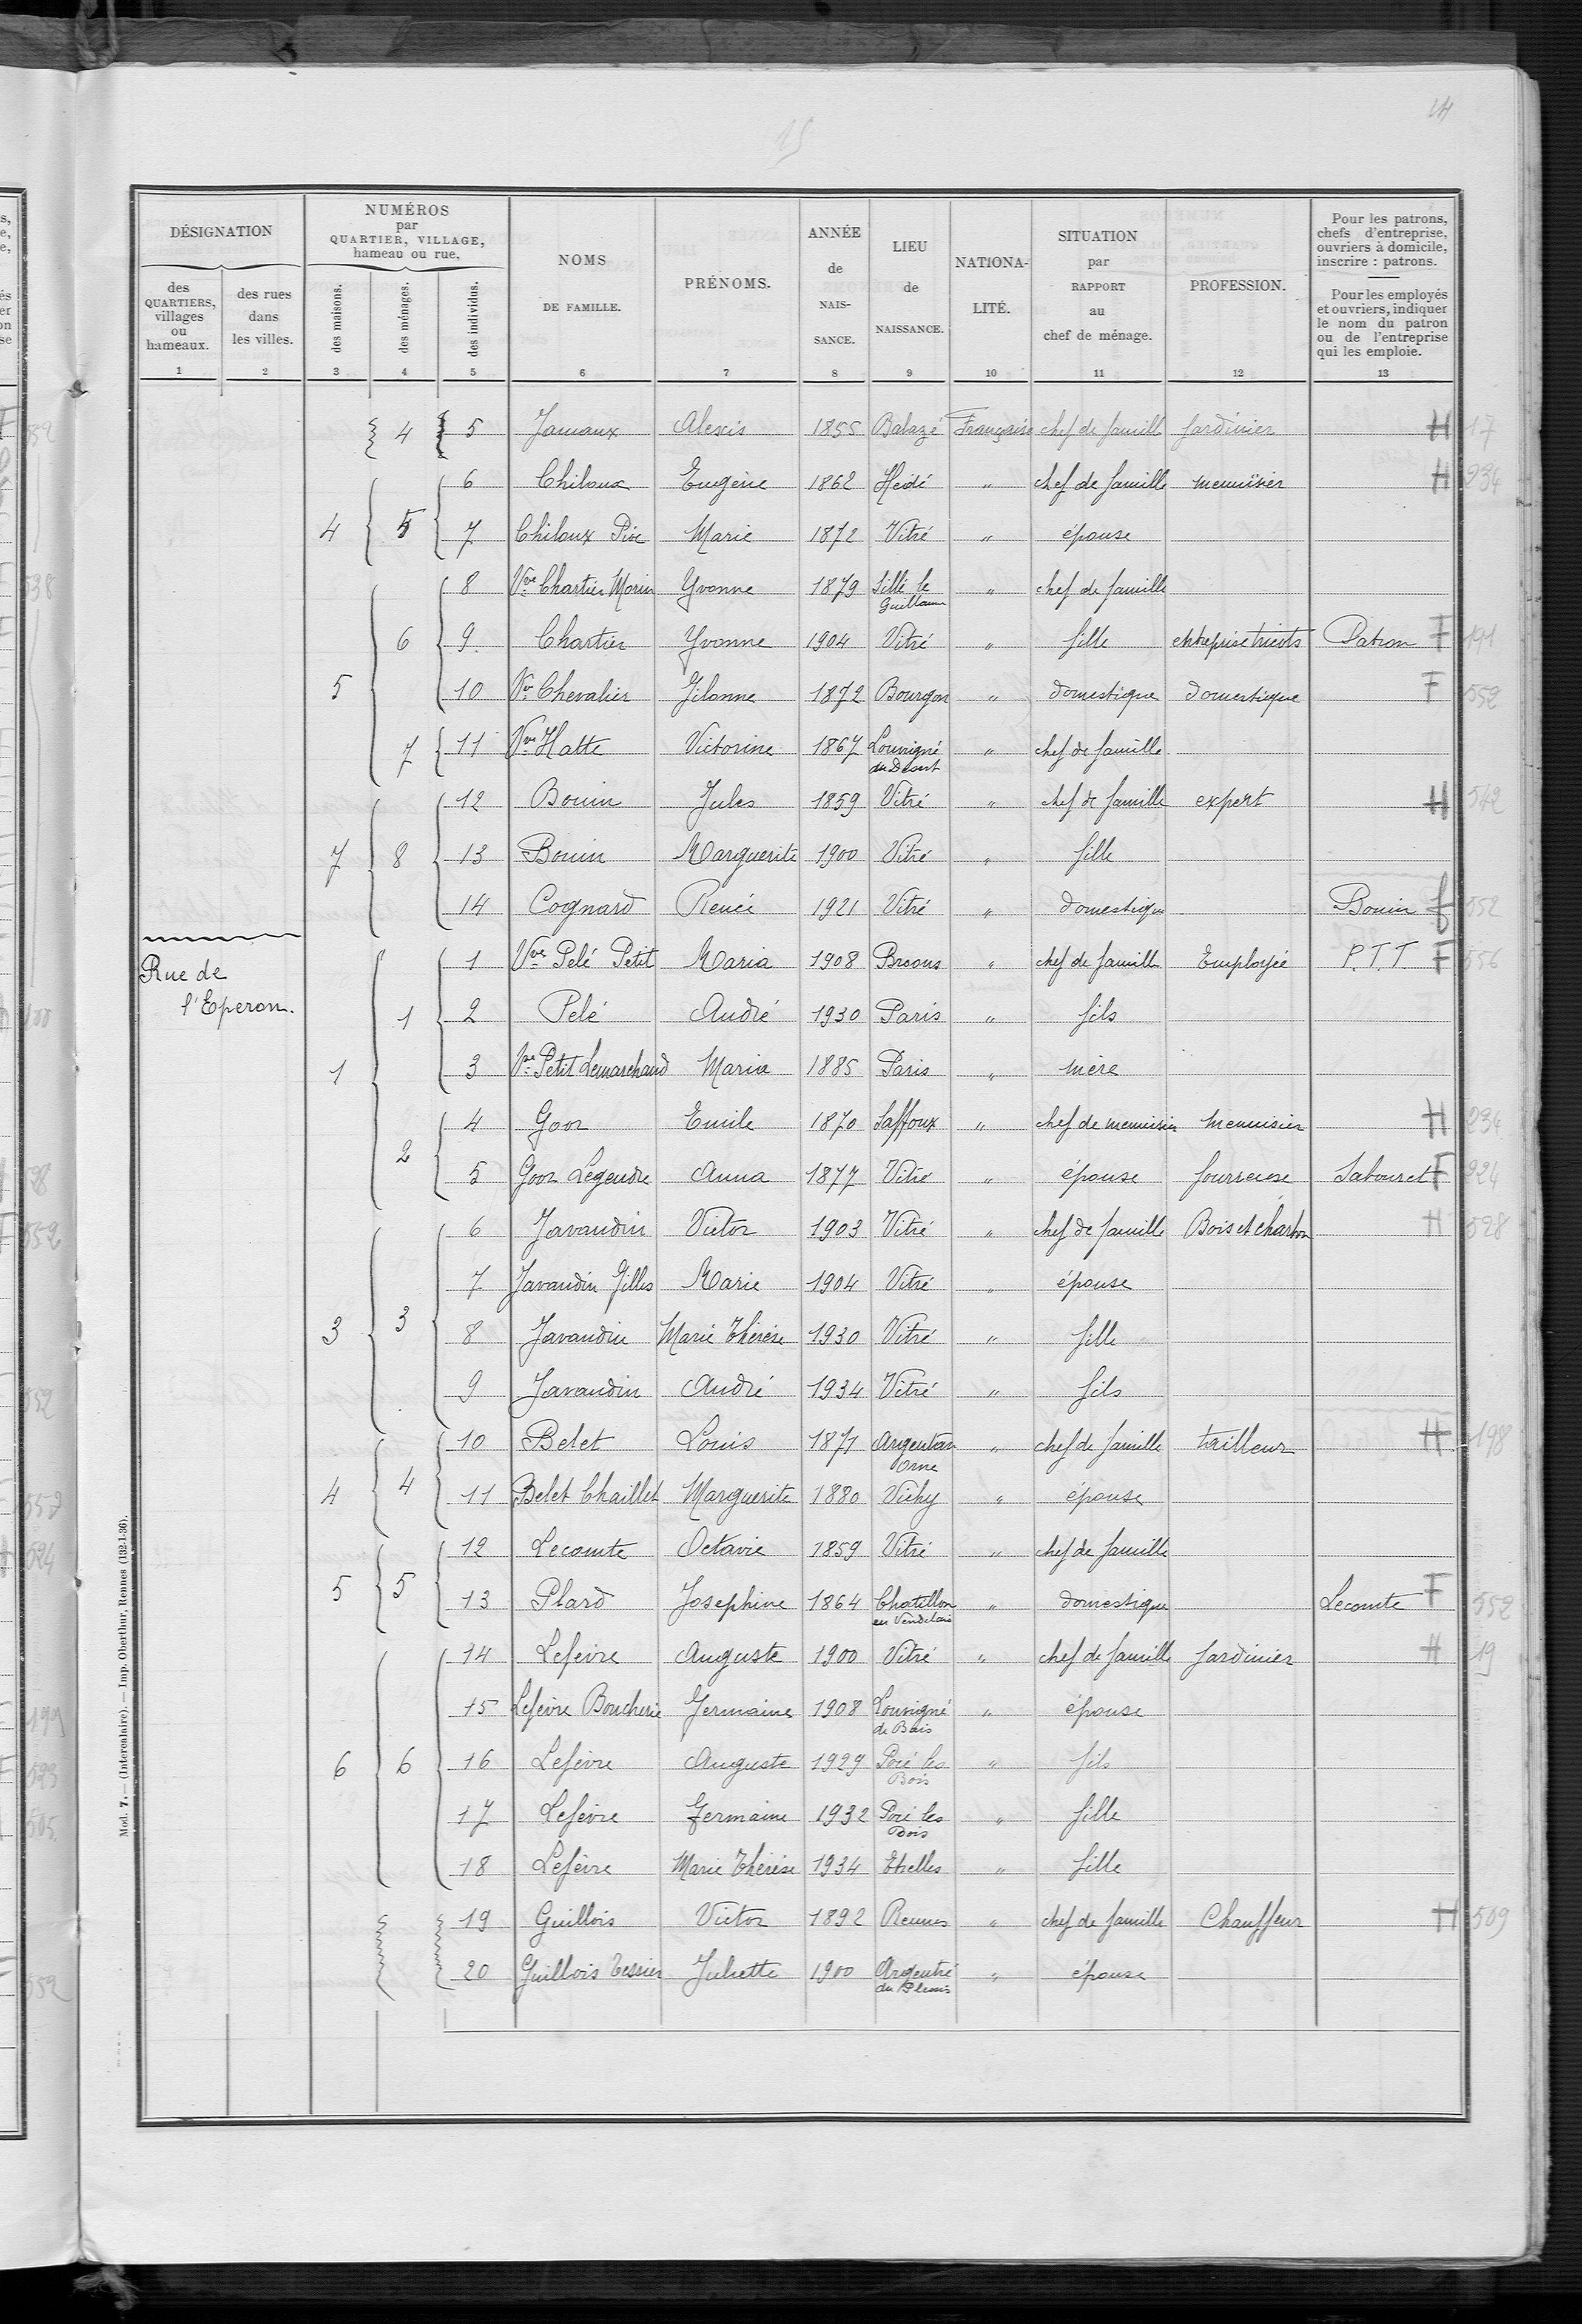 14
15
DÉSIGNATION
NUMÉROS
par
QUARTIER, VILLAGE,
hameau ou rue.
des
QUARTIERS,
villages
ou
hameaux.
des rues
dans
les villes.
des maisons.
des ménages.
des individus.
NOMS
DE FAMILLE.
PRÉNOMS.
ANNÉE
de
NAIS-
SANCE.
LIEU
de
NAISSANCE.
NATIONA-
LITÉ.
SITUATION
par
RAPPORT
au
chef de ménage.
PROFESSION.
Pour les patrons,
chefs d'entreprise,
ouvriers à domicile,
inscrire : patrons.
Pour les employés
et ouvriers, indiquer
le nom du patron
ou de l'entreprise
qui les emploie.
1 2 3 4 5 6 7 8 9 10 11 12 13
4 5 Jamaux Alexis 1855 Balazé Française chef de famille Jardinier H 17
6 Chiloux Eugène 1862 Hédé " chef de famille menuisier H 234
4 5 7 Chiloux Pive Marie 1872 Vitré " épouse
8 Vve Chartier Morin Yvonne 1879 Sillé le Guillaume " chef de famille
6 9 Chartier Yvonne 1904 Vitré " fille entreprise tricots Patron F 191
5 10 Vve Chevalier Jilonne 1872 Bourgon " domestique domestique F 552
7 11 Vve Hatte Victorine 1867 Louvigné du Désert " chef de famille
12 Bouin Jules 1859 Vitré " chef de famille expert H 542
7 8 13 Bouin Marguerite 1900 Vitré " fille
14 Cognard Renée 1921 Vitré " domestique Bouin f 552
Rue de l'Eperon.
1 Vve Pelé Petit Maria 1908 Broons " chef de famille Employée P.T.T. F 556
1 2 Pelé André 1930 Paris " fils
1 3 Vve Petit Lemarchand Marie 1885 Paris " mère
4 Goor Emile 1870 Saffoux " chef de menuisier menuisier H 234
2 5 Goor Legendre Anna 1877 Vitré " épouse fourreuse Sabouret F 224
6 Javaudin Victor 1903 Vitré " chef de famille Bois et charbon H 528
7 Javaudin Gilles Marie 1904 Vitré " épouse
3 3 8 Javaudin Marie Thérèse 1930 Vitré " fille
9 Javaudin André 1934 Vitré " fils
10 Belet Louis 1871 Argentan Orne " chef de famille tailleur H 198
4 4 11 Belet Chaillet Marguerite 1880 Vichy " épouse
12 Lecomte Octavie 1859 Vitré " chef de famille
5 5 13 Plard Josephine 1864 Chatillon en Vendelais " domestique Lecomte F 552
14 Lefeivre Auguste 1900 Vitré " chef de famille Jardinier H 19
15 Lefeivre Boucherie Germaine 1908 Louvigné de Bais " épouse
6 6 16 Lefeivre Auguste 1929 Pocé les Bois " fils
17 Lefeivre Germaine 1932 Pocé les Bois " fille
18 Lefeivre Marie Thérèse 1934 Etrelles " fille
19 Guillois Victor 1892 Rennes " chef de famille Chauffeur H 509
20 Guillois Tessier Juliette 1900 Argentré du Plessis " épouse
Mod. 7. — (Intercalaire). — Imp. Oberthur, Rennes (132-1-36).